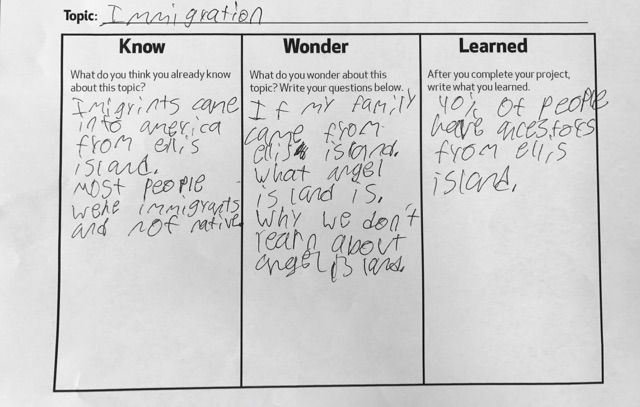 Topic: Immigration
Know
What do you think you already know
about this topic?
Imigrints came
into america
from ellis
island.
most people
were immigrants
and not native.
Wonder
What do you wonder about this
topic? Write your questions below.
If my family
came from
ellis island.
what angel
island is.
Why we don't
learn about
angel island.
Learned
After you complete your project,
write what you learned.
40% of people
have ancestors
from ellis
island.